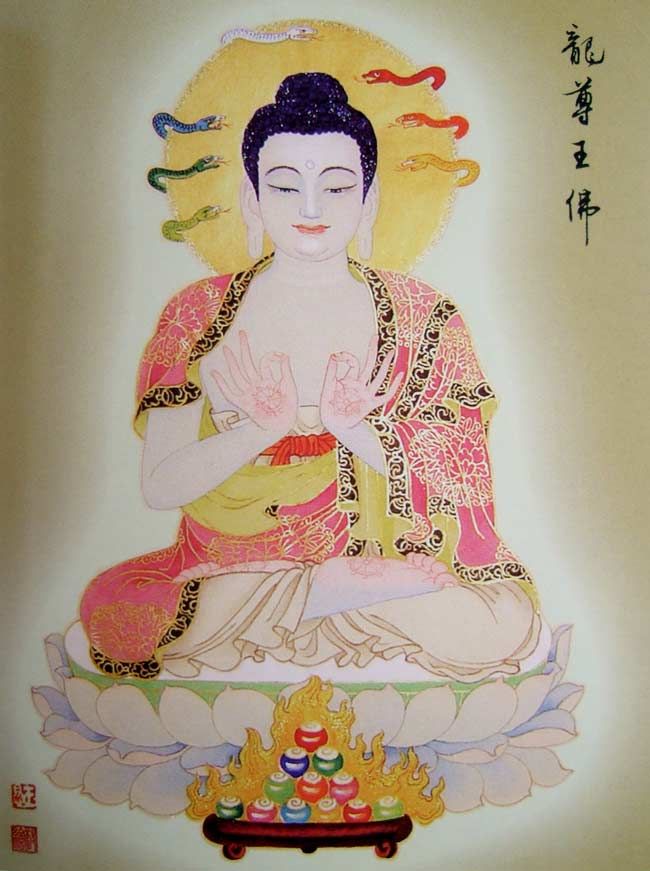 龍尊王佛